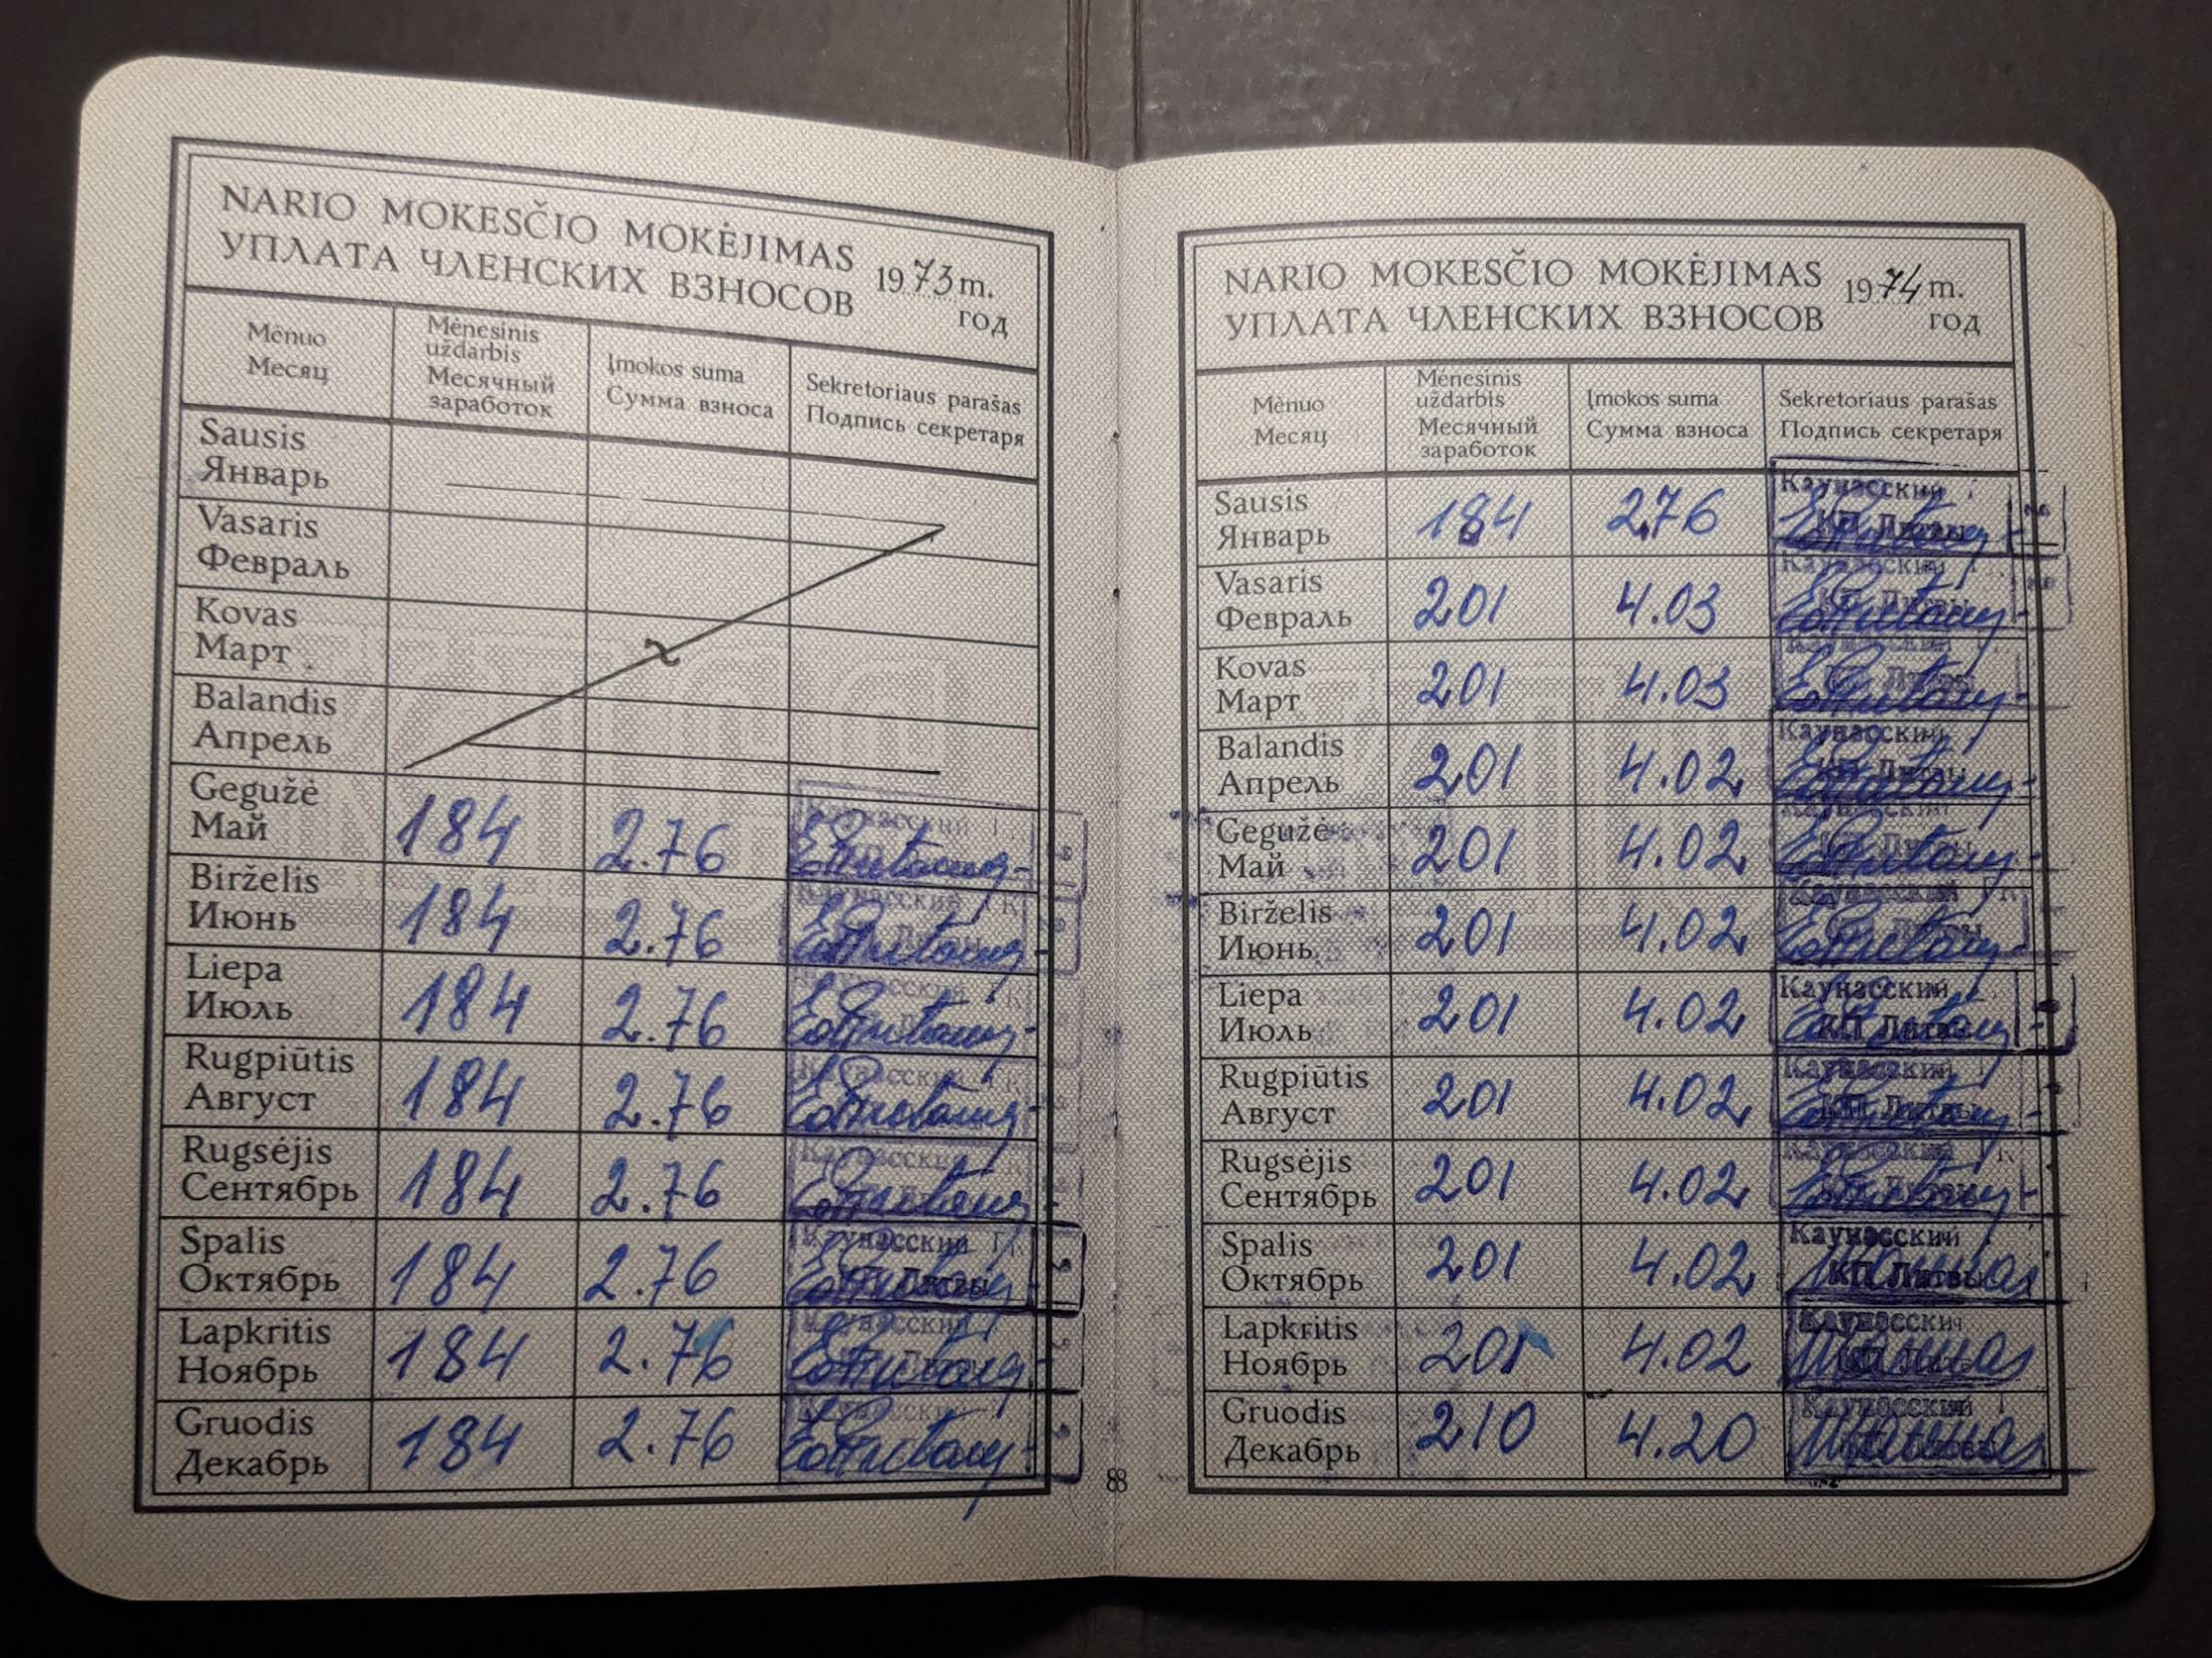 NARIO MOKESČIO MOKĖJIMAS 1973 m.
УПЛАТА ЧЛЕНСКИХ ВЗНОСОВ год
Mėnuo
Месяц
Mėnesinis
uždarbis
Месячный
заработок
Įmokos suma
Сумма взноса
Sekretoriaus parašas
Подпись секретаря
Sausis
Январь
Vasaris
Февраль
Kovas
Март
Balandis
Апрель
Gegužė
Май 184 2.76
Birželis
Июнь 184 2.76
Liepa
Июль 184 2.76
Rugpiūtis
Август 184 2.76
Rugsėjis
Сентябрь 184 2.76
Spalis
Октябрь 184 2.76
Lapkritis
Ноябрь 184 2.76
Gruodis
Декабрь 184 2.76
88
NARIO MOKESČIO MOKĖJIMAS 1974 m.
УПЛАТА ЧЛЕНСКИХ ВЗНОСОВ год
Mėnuo
Месяц
Mėnesinis
uždarbis
Месячный
заработок
Įmokos suma
Сумма взноса
Sekretoriaus parašas
Подпись секретаря
Sausis Каунасский
Январь 184 2.76 КП Литвы
Vasaris Каунасский
Февраль 201 4.03
Kovas
Март 201 4.03
Balandis Каунасский
Апрель 201 4.02 КП Литвы
Gegužė
Май 201 4.02
Birželis Каунасский
Июнь 201 4.02
Liepa Каунасский
Июль 201 4.02 КП Литвы
Rugpiūtis Каунасский
Август 201 4.02 КП Литвы
Rugsėjis Каунасский
Сентябрь 201 4.02
Spalis Каунасский
Октябрь 201 4.02 КП Литвы
Lapkritis Каунасский
Ноябрь 201 4.02
Gruodis Каунасский
Декабрь 210 4.20